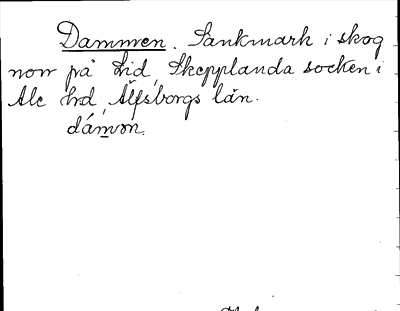 Dammen. Sankmark i skog
norr på Lid, Skepplanda socken i
Ale hd, Älfsborgs län.
dámən.